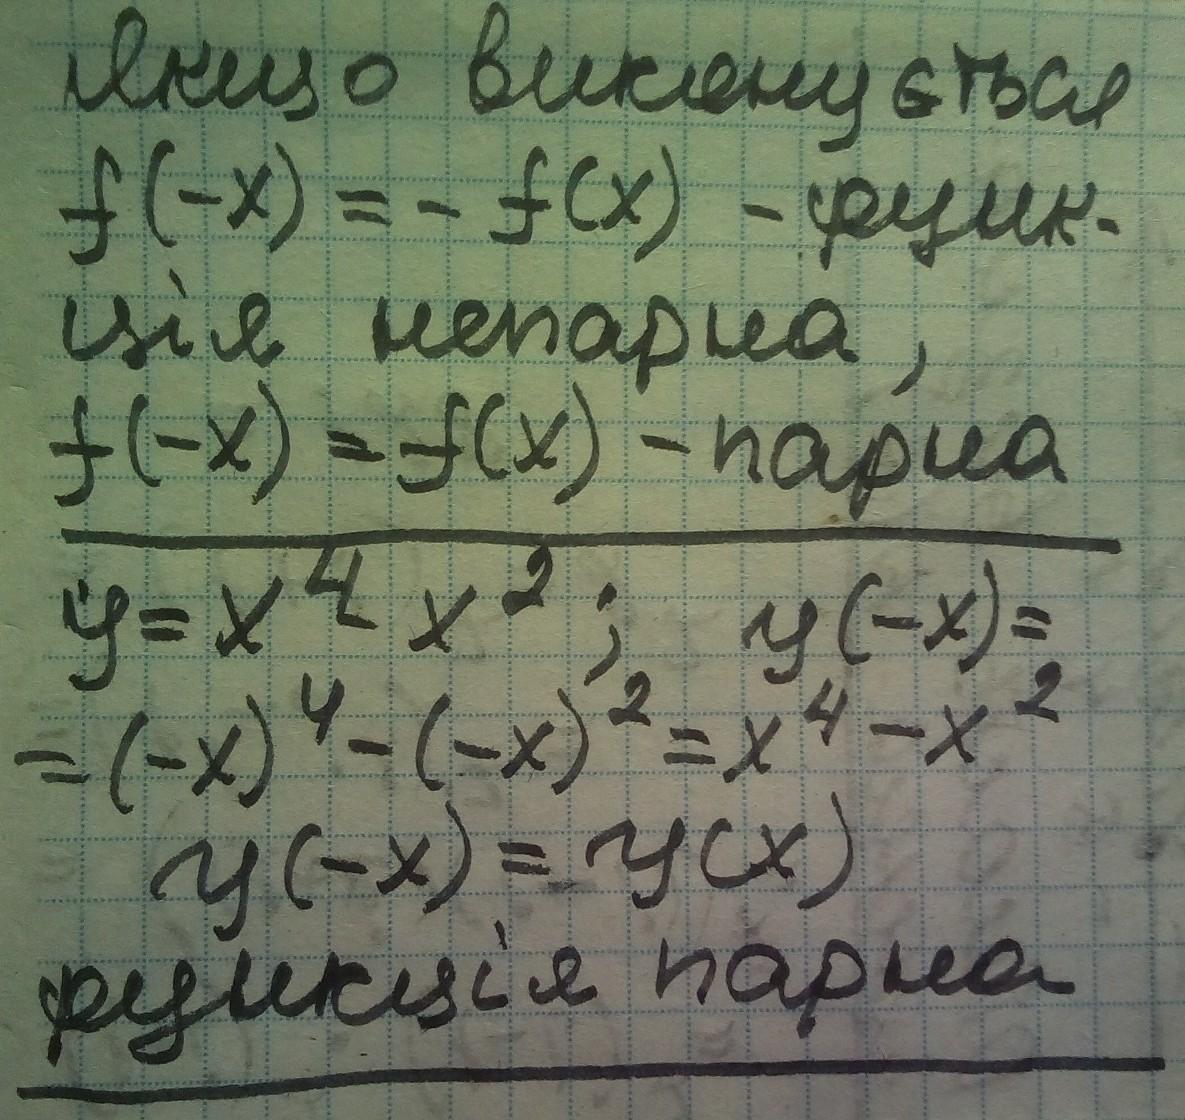 Якщо виконується
f(-x) = - f(x) - функ-
ція непарна,
f(-x) = f(x) - парна
y = x⁴ x²; y(-x) =
= (-x)⁴ - (-x)² = x⁴ - x²
y(-x) = y(x)
функція парна